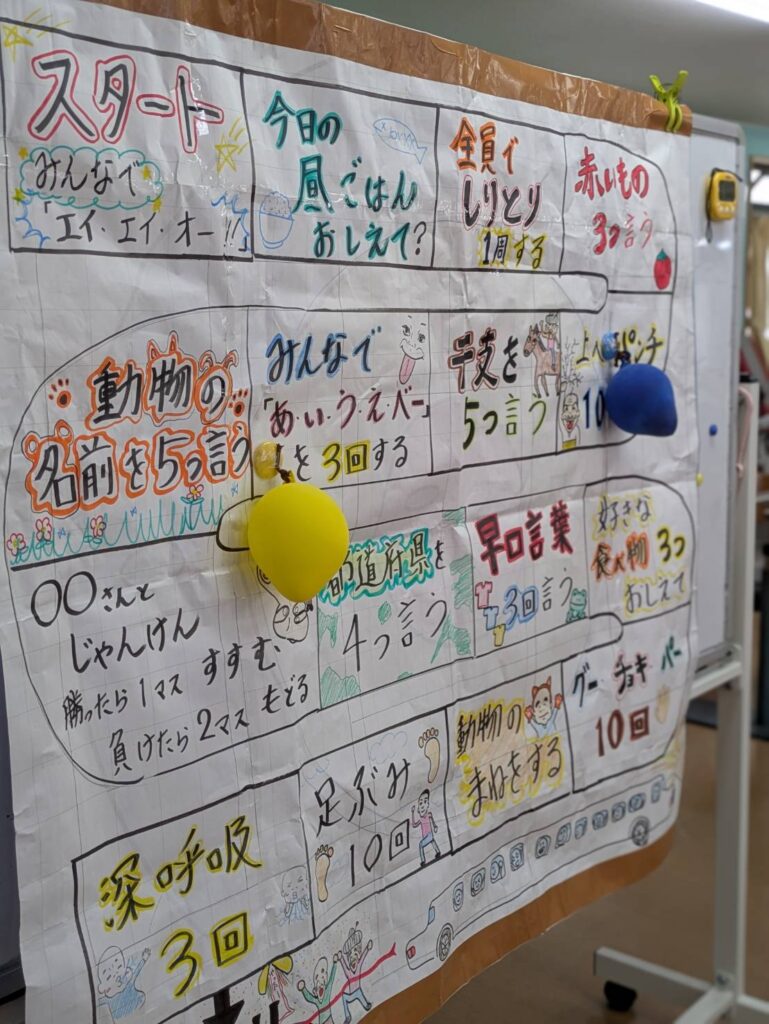 スタート
みんなで
「エイ・エイ・オー!!」
今日の
昼ごはん
おしえて?
全員で
しりとり
1周する
赤いもの
3つ言う
動物の
名前を5つ言う
みんなで
「あ・い・う・え・べー」
を3回する
干支を
5つ言う
上へ パンチ
10
〇〇さんと
じゃんけん
勝ったら1マス すすむ、
負けたら2マス もどる
都道府県を
4つ言う
早口言葉
3回言う
好きな
食べ物 3つ
おしえて
深呼吸
3回
足ぶみ
10回
動物の
まねをする
グー チョキ パー
10回